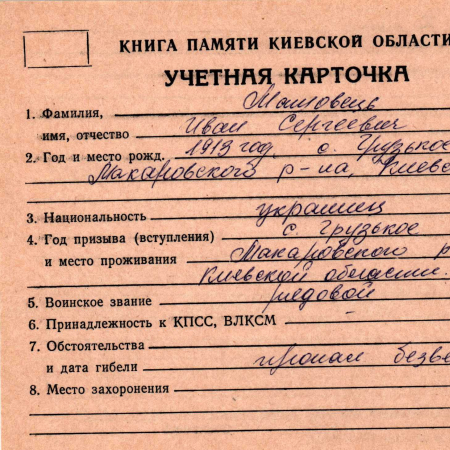 КНИГА ПАМЯТИ КИЕВСКОЙ ОБЛАСТИ
УЧЕТНАЯ КАРТОЧКА
1. Фамилия, Машовець
имя, отчество Иван Сергеевич
2. Год и место рожд. 1913 год, с. Грузькое
Макаровского р-на, Киевс
3. Национальность украинец
4. Год призыва (вступления) с. Грузькое
и место проживания Макаровского р
Киевской области.
5. Воинское звание рядовой
6. Принадлежность к КПСС, ВЛКСМ
7. Обстоятельства
и дата гибели пропал безве
8. Место захоронения